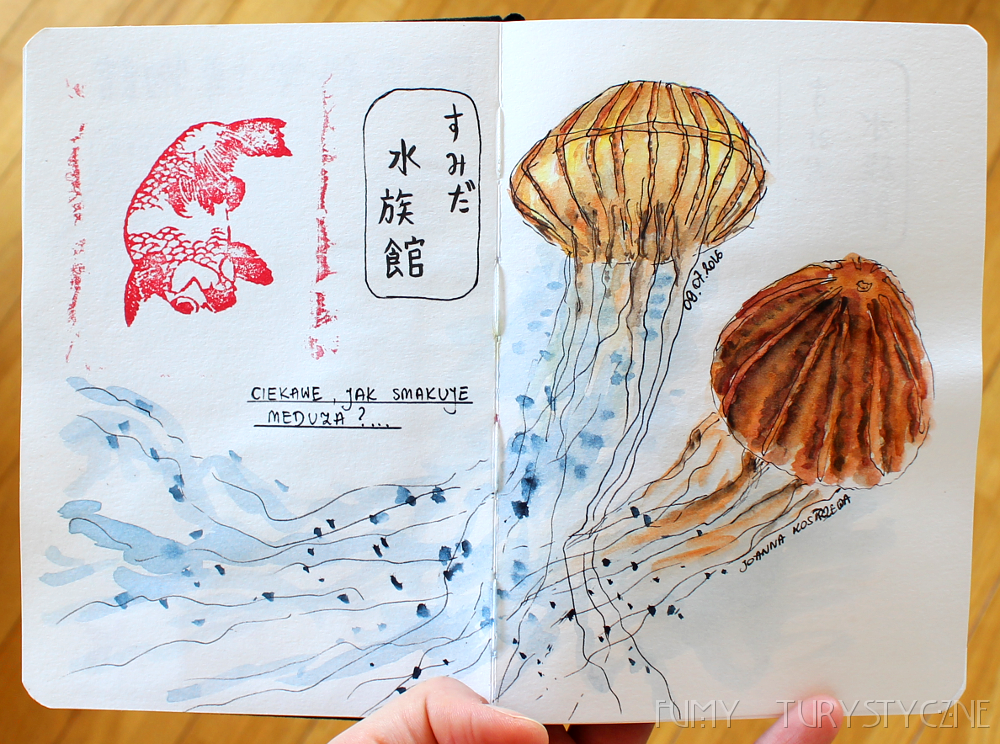 すみだ
水族館
CIEKAWE, JAK SMAKUJE
MEDUZA?...
08.07.2016
JOANNA KOSTRZEWA
FUMY TURYSTYCZNE